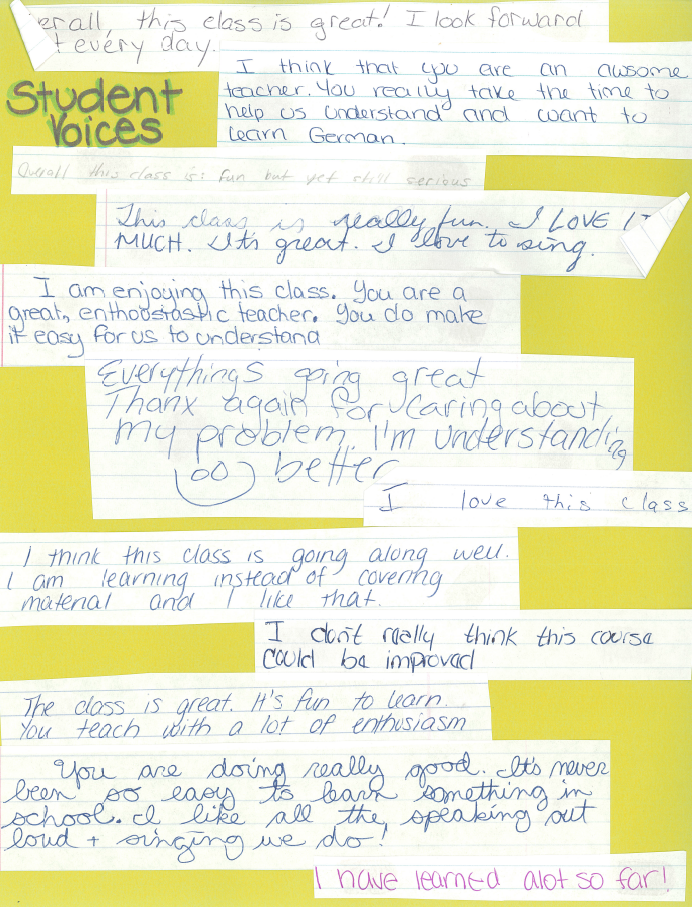 erall, this class is great! I look forward
t every day.
Student
Voices
I think that you are an awsome
teacher. You really take the time to
help us understand and want to
learn German.
Overall this class is: fun but yet still serious
This class is really fun. I LOVE IT
MUCH. It's great. I love to sing.
I am enjoying this class. You are a
great, enthoostastic teacher. You do make
it easy for us to understand
Everything's going great
Thanx again for caring about
my problem. I'm understanding
better
I love this class
I think this class is going along well.
I am learning instead of covering
material and I like that.
I don't really think this course
could be improved
The class is great. It's fun to learn.
You teach with a lot of enthusiasm
You are doing really good. It's never
been so easy to learn something in
school. I like all the speaking out
loud + singing we do!
I have learned alot so far!